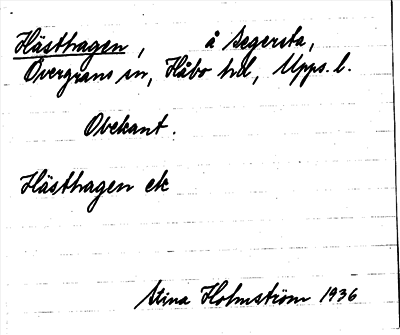 Hästhagen, å Segersta,
Övergrans sn, Håbo hd, Upps. l.
Obekant.
Hästhagen ek
Stina Holmström 1936